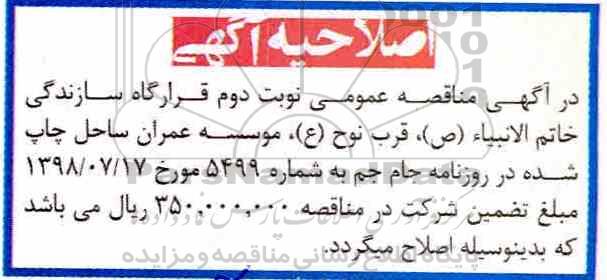 اصلاحیه آگهی
در آگهی مناقصه عمومی نوبت دوم قرارگاه سازندگی
خاتم الانبیاء (ص)، قرب نوح (ع)، موسسه عمران ساحل چاپ
شده در روزنامه جام جم به شماره ۵۴۹۹ مورخ ۱۳۹۸/۰۷/۱۷
مبلغ تضمین شرکت در مناقصه ۳۵۰,۰۰۰,۰۰۰ ریال می باشد
که بدینوسیله اصلاح میگردد.
پایگاه اطلاع رسانی مناقصه و مزایده